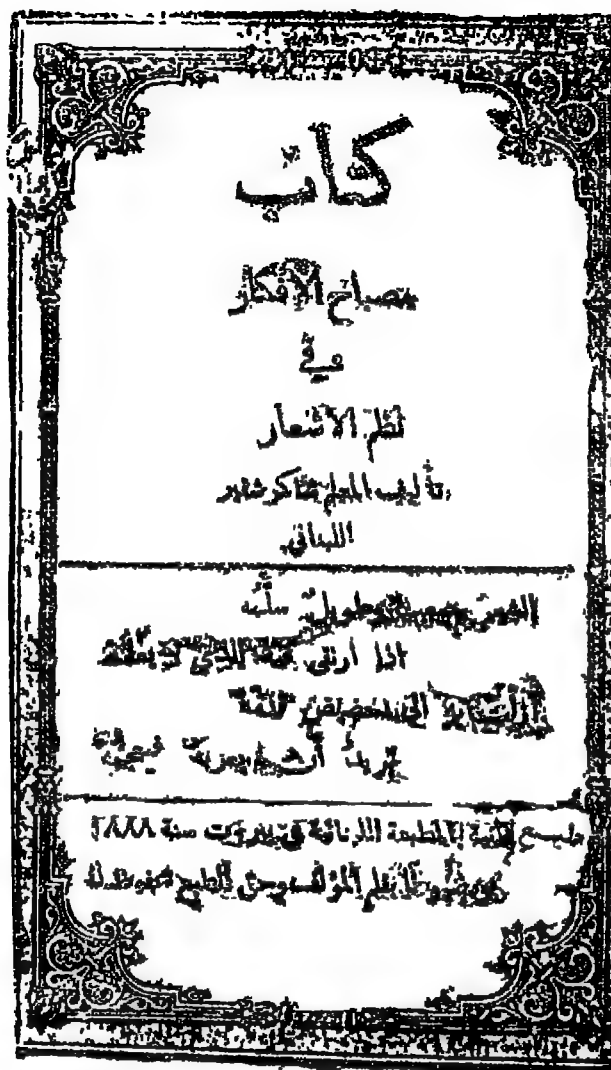 كتاب
مصباح الافكار
في
نظم الاشعار
تأليف المعلم شاكر شقير
اللبناني
الشعر صعب وطويل سلمه
اذا ارتقى فيه الذي لا يعلمه
زلت به الى الحضيض قدمه
يريد أن يعربه فيعجمه
طبع بالمطبعة اللبنانية في بيروت سنة ١٨٨٨
المؤلف وحق الطبع محفوظ له